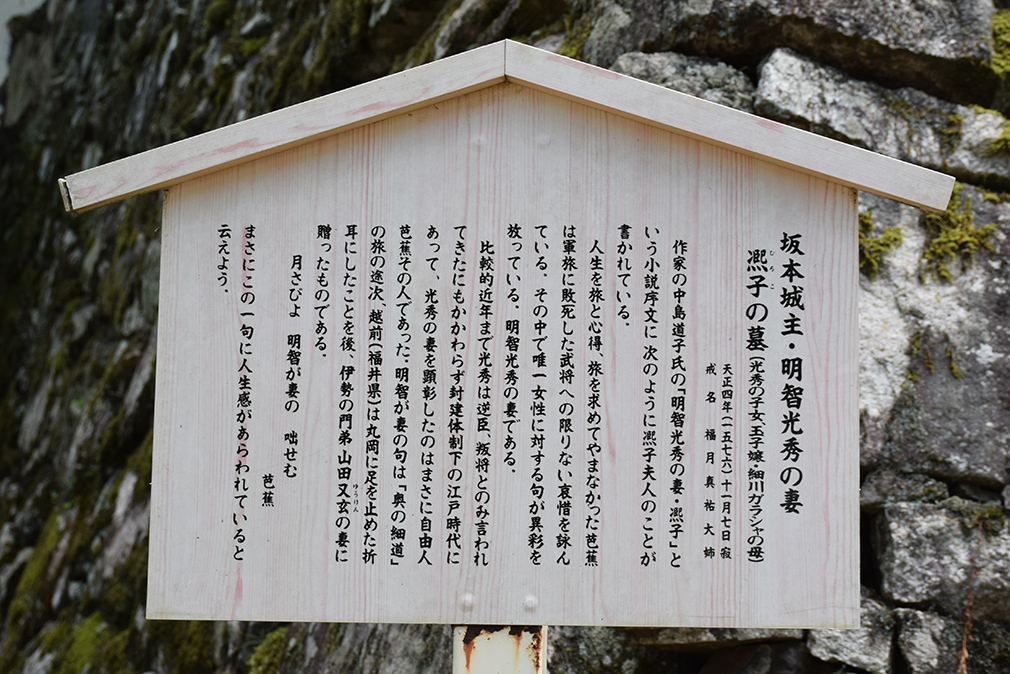 坂本城主・明智光秀の妻
凞子の墓（光秀の子女、玉子嬢・細川ガラシャの母）
ひろこ
天正四年（一五七六）十一月七日寂
戒名 福月真祐大姉
作家の中島道子氏の「明智光秀の妻・凞子」と
いう小説序文に 次のように凞子夫人のことが
書かれている．
人生を旅と心得、旅を求めてやまなかった芭蕉
は軍旅に敗死した武将への限りない哀惜を詠ん
でいる．その中で唯一女性に対する句が異彩を
放っている．明智光秀の妻である．
比較的近年まで光秀は逆臣、叛将とのみ言われ
てきたにもかかわらず封建体制下の江戸時代に
あって、光秀の妻を顕彰したのはまさに自由人
芭蕉その人であった．明智が妻の句は「奥の細道」
の旅の途次、越前（福井県）は丸岡に足を止めた折
耳にしたことを後、伊勢の門弟 山田又玄の妻に
ゆうげん
贈ったものである．
月さびよ 明智が妻の 咄せむ
芭蕉
まさにこの一句に人生感があらわれていると
云えよう．